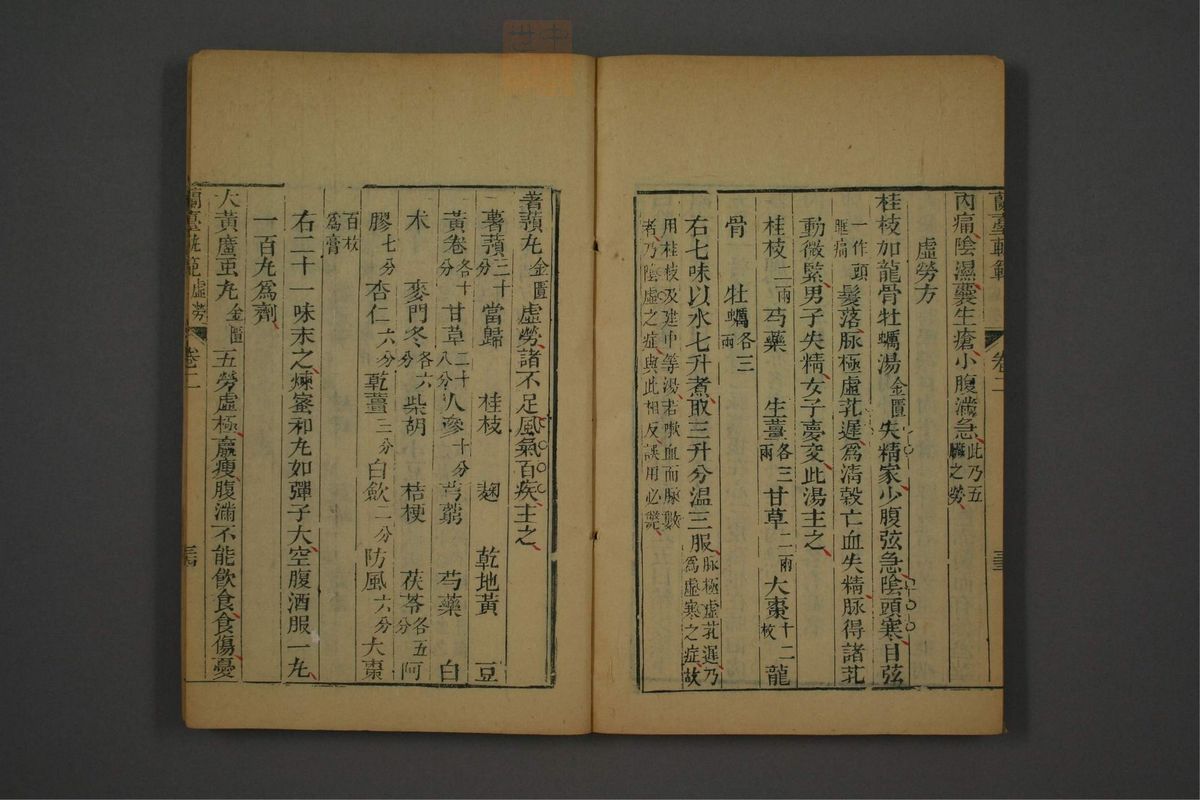 蘭臺軌範 卷二 三三
內痛陰濕囊生瘡小腹滿急此乃五臟之勞
虛勞方
桂枝加龍骨牡蠣湯金匱失精家少腹弦急陰頭寒目弦
一作頭眶痛髮落脉極虛芤遲爲清穀亡血失精脉得諸芤
動微緊男子失精女子夢交此湯主之
桂枝二兩芍藥 生薑各三兩甘草二兩大棗十二枚龍
骨 牡蠣各三兩
右七味以水七升煮取三升分温三服脉極虛芤遲乃爲虛寒之症故
用桂枝及建中等湯若嗽血而脉數者乃陰虛之症與此相反誤用必斃
薯蕷丸金匱虛勞諸不足風氣百疾主之
薯蕷三十分當歸 桂枝 麴 乾地黃 豆
黃卷各十分甘草二十八分人參十分芎藭 芍藥 白
朮 麥門冬各六分柴胡 桔梗 茯苓各五分阿
膠七分杏仁六分乾薑三分白歛二分防風六分大棗
百枚爲膏
右二十一味末之煉蜜和丸如彈子大空腹酒服一丸
一百丸爲劑
大黃䗪虫丸金匱五勞虛極羸瘦腹滿不能飮食食傷憂
蘭臺軌範虛勞 卷二